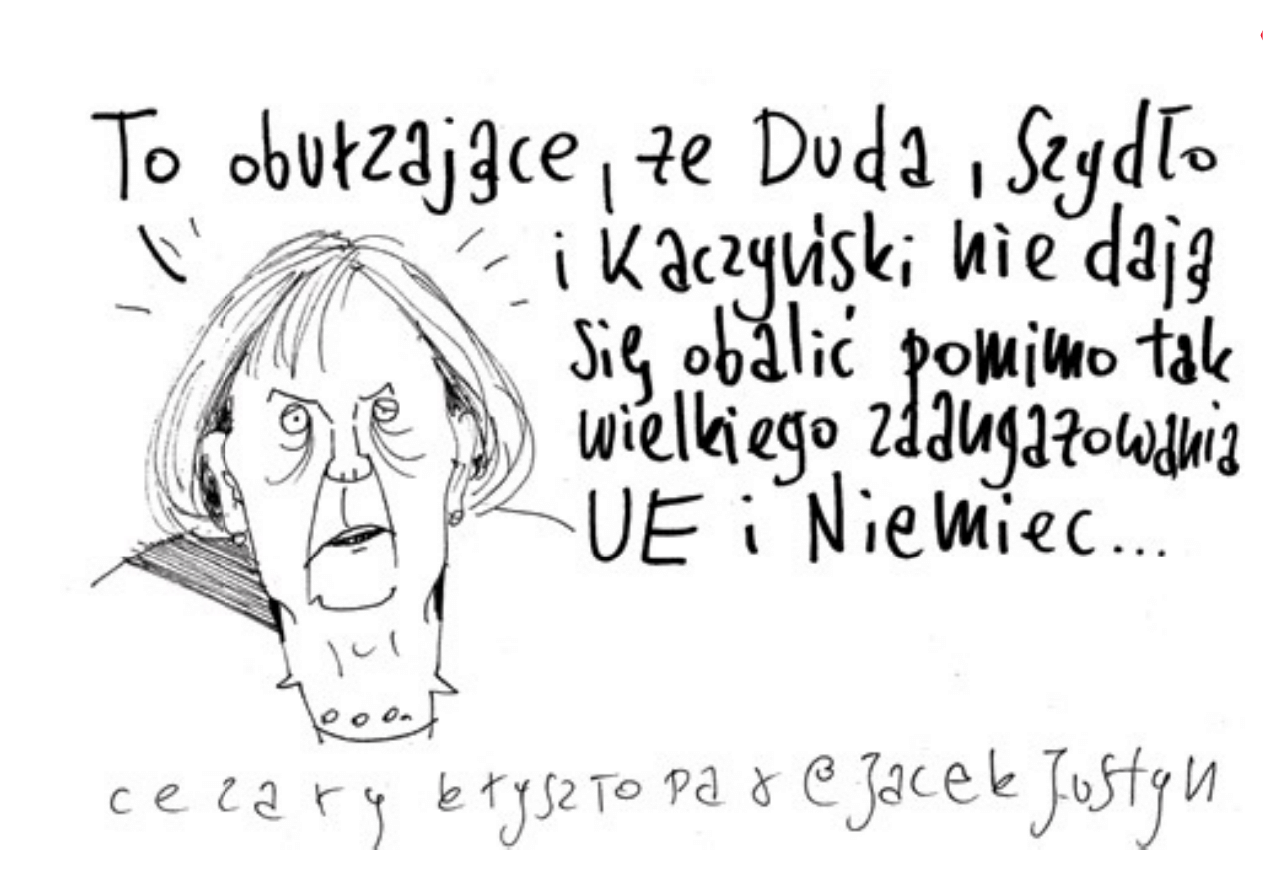 To oburzające, że Duda, Szydło
i Kaczyński nie dają
się obalić pomimo tak
wielkiego zaangażowania
UE i Niemiec...
cezary krysztopa & @JacekJustyn